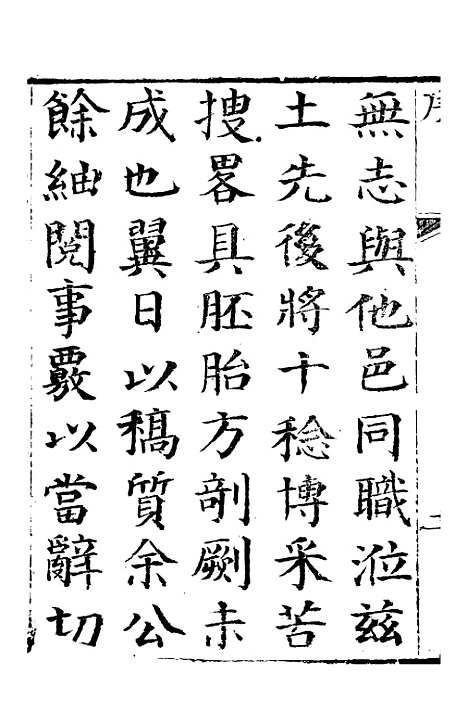 序
二
無志與他邑同職涖兹
土先後將十稔博采苦
搜畧具胚胎方剞劂未
成也翼日以稿質余公
餘紬閱事覈以當辭切